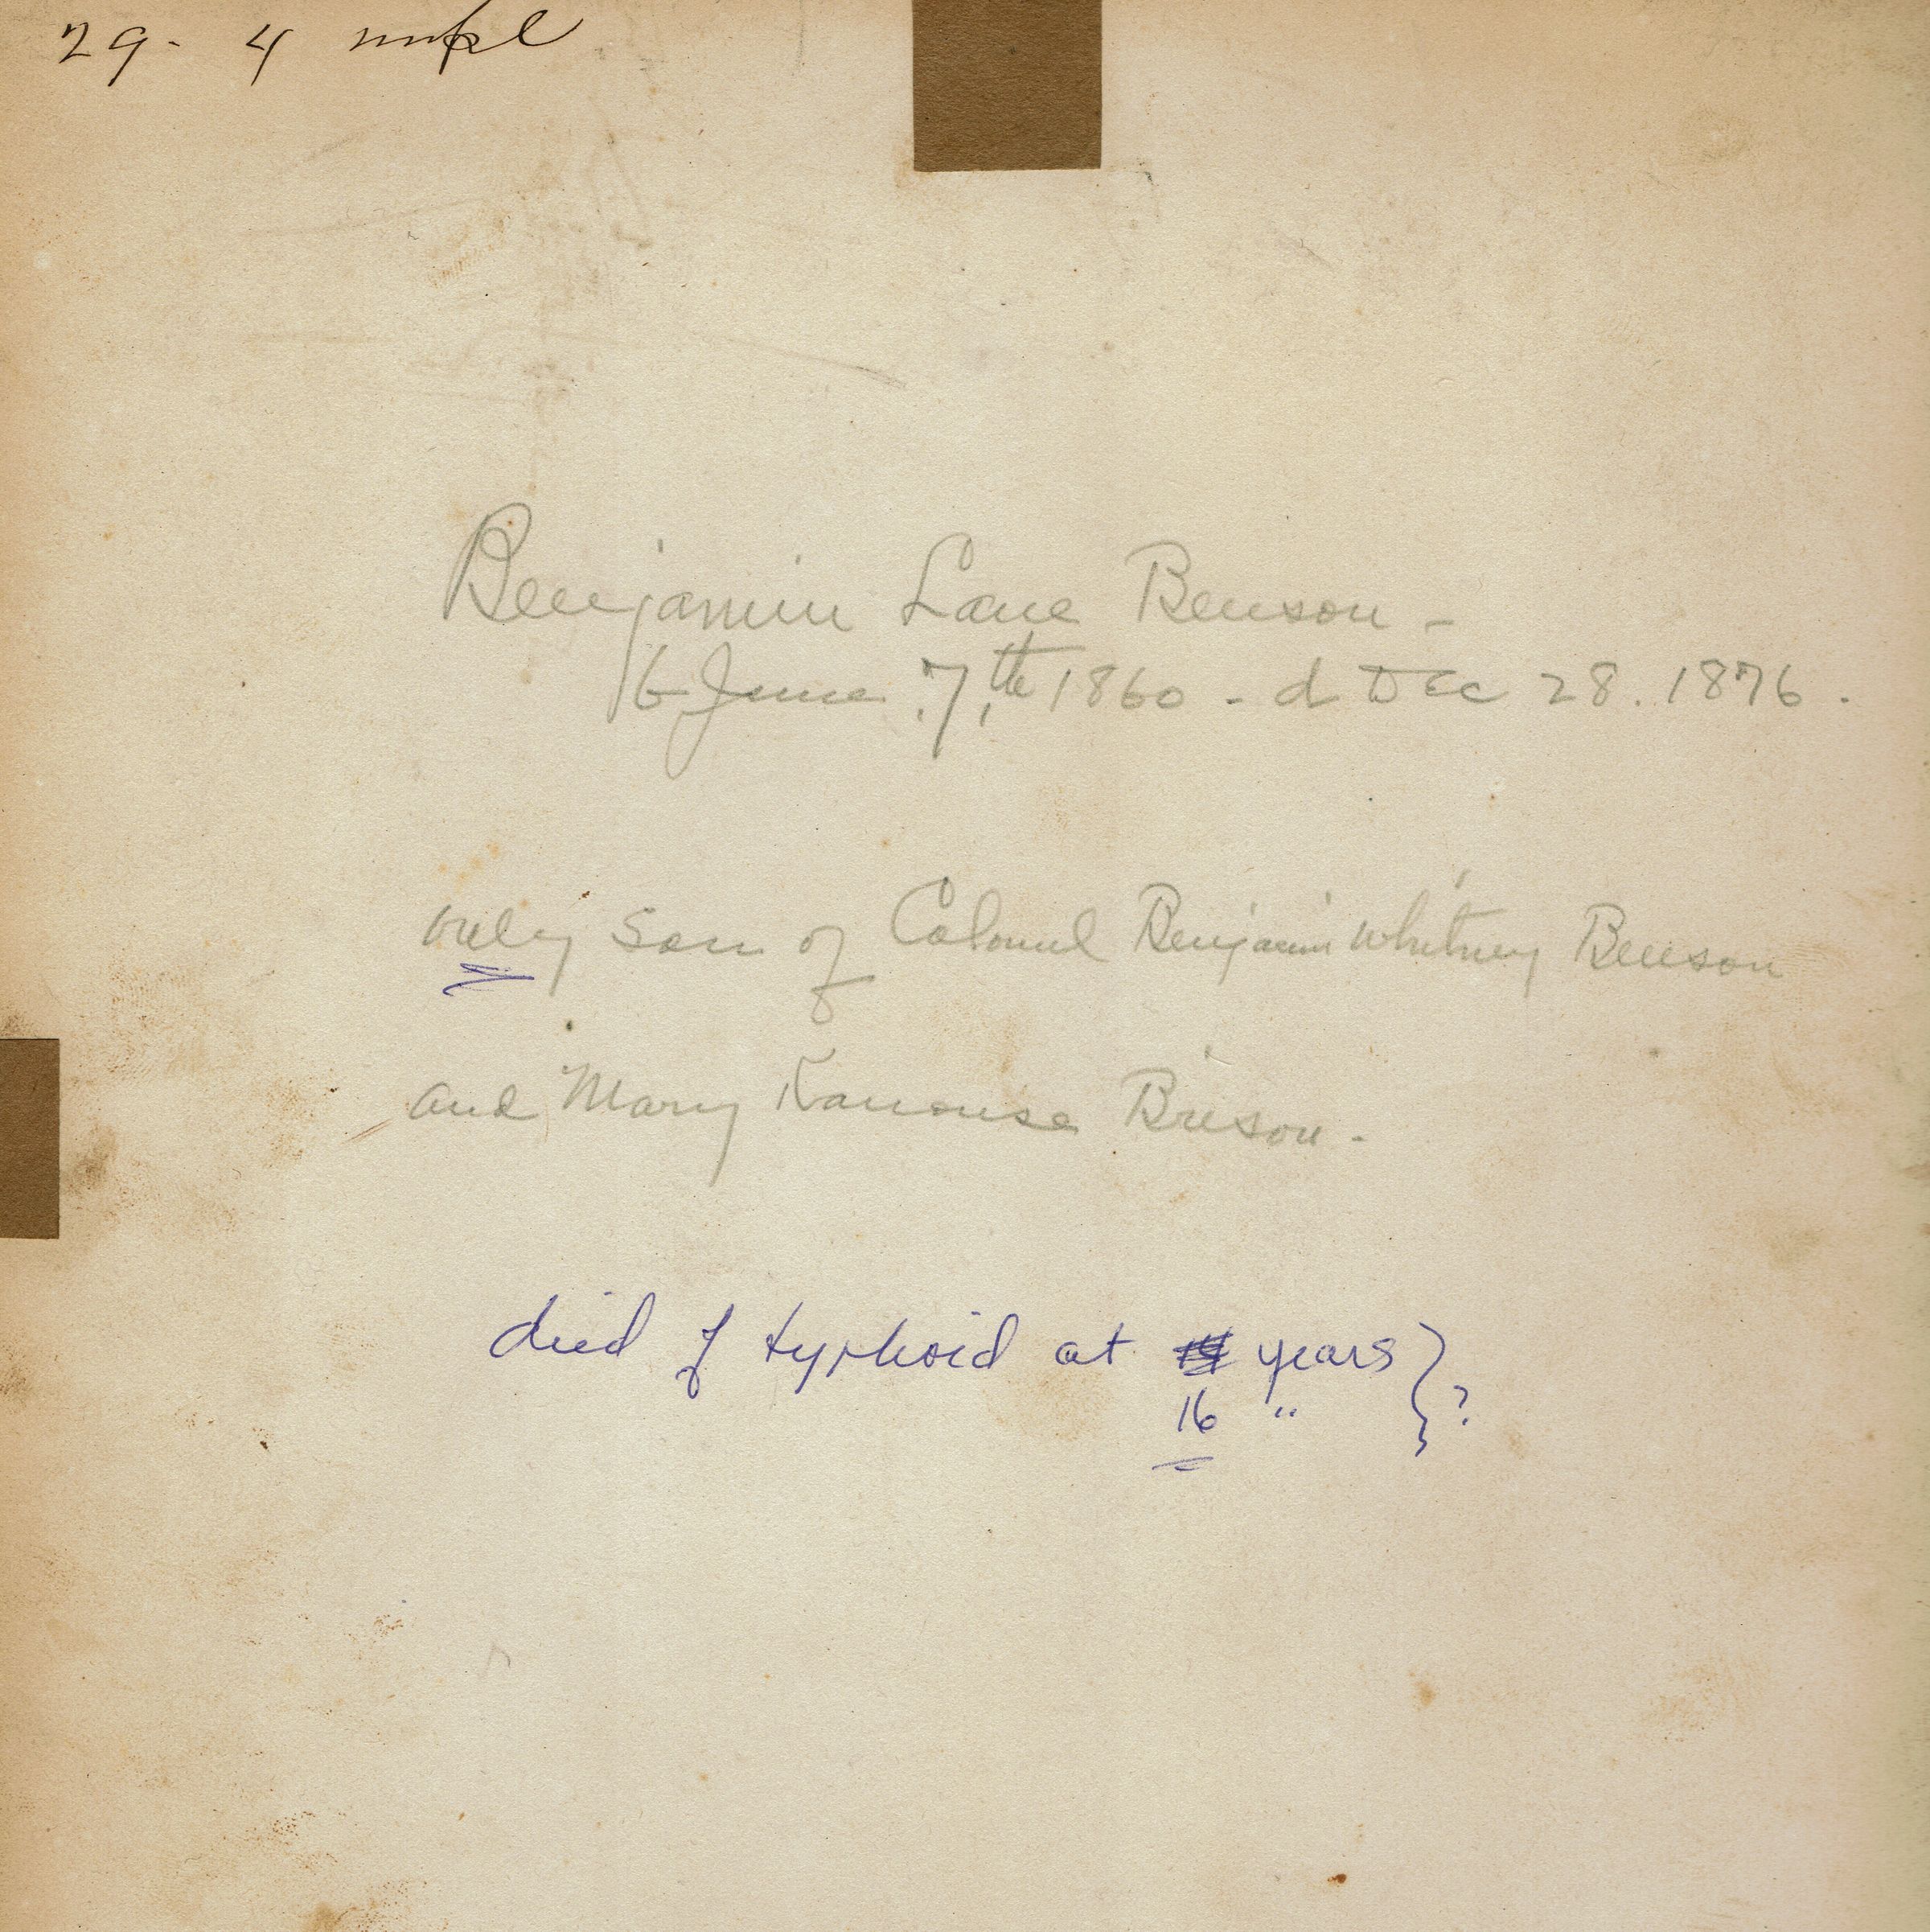 29 - 4
Benjamin Lane Benson -
b June 7th 1860 - d Dec 28. 1876.
only son of Colonel Benjamin Whitney Benson
and Mary Kanouse Benson -
died of typhoid at years } ?
16 "